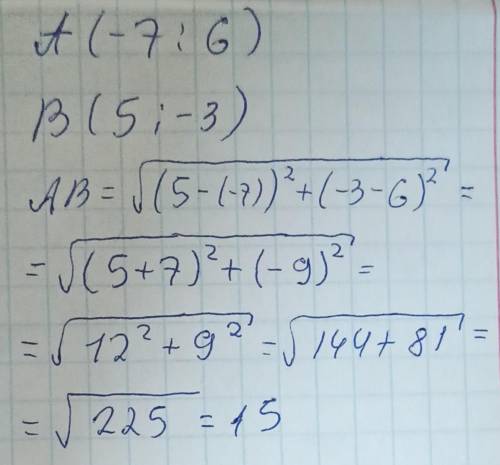 A (-7 ; 6)
B (5 ; -3)
AB = √((5-(-7))² + (-3-6)²) =
= √((5+7)² + (-9)²) =
= √(12² + 9²) = √(144 + 81) =
= √225 = 15